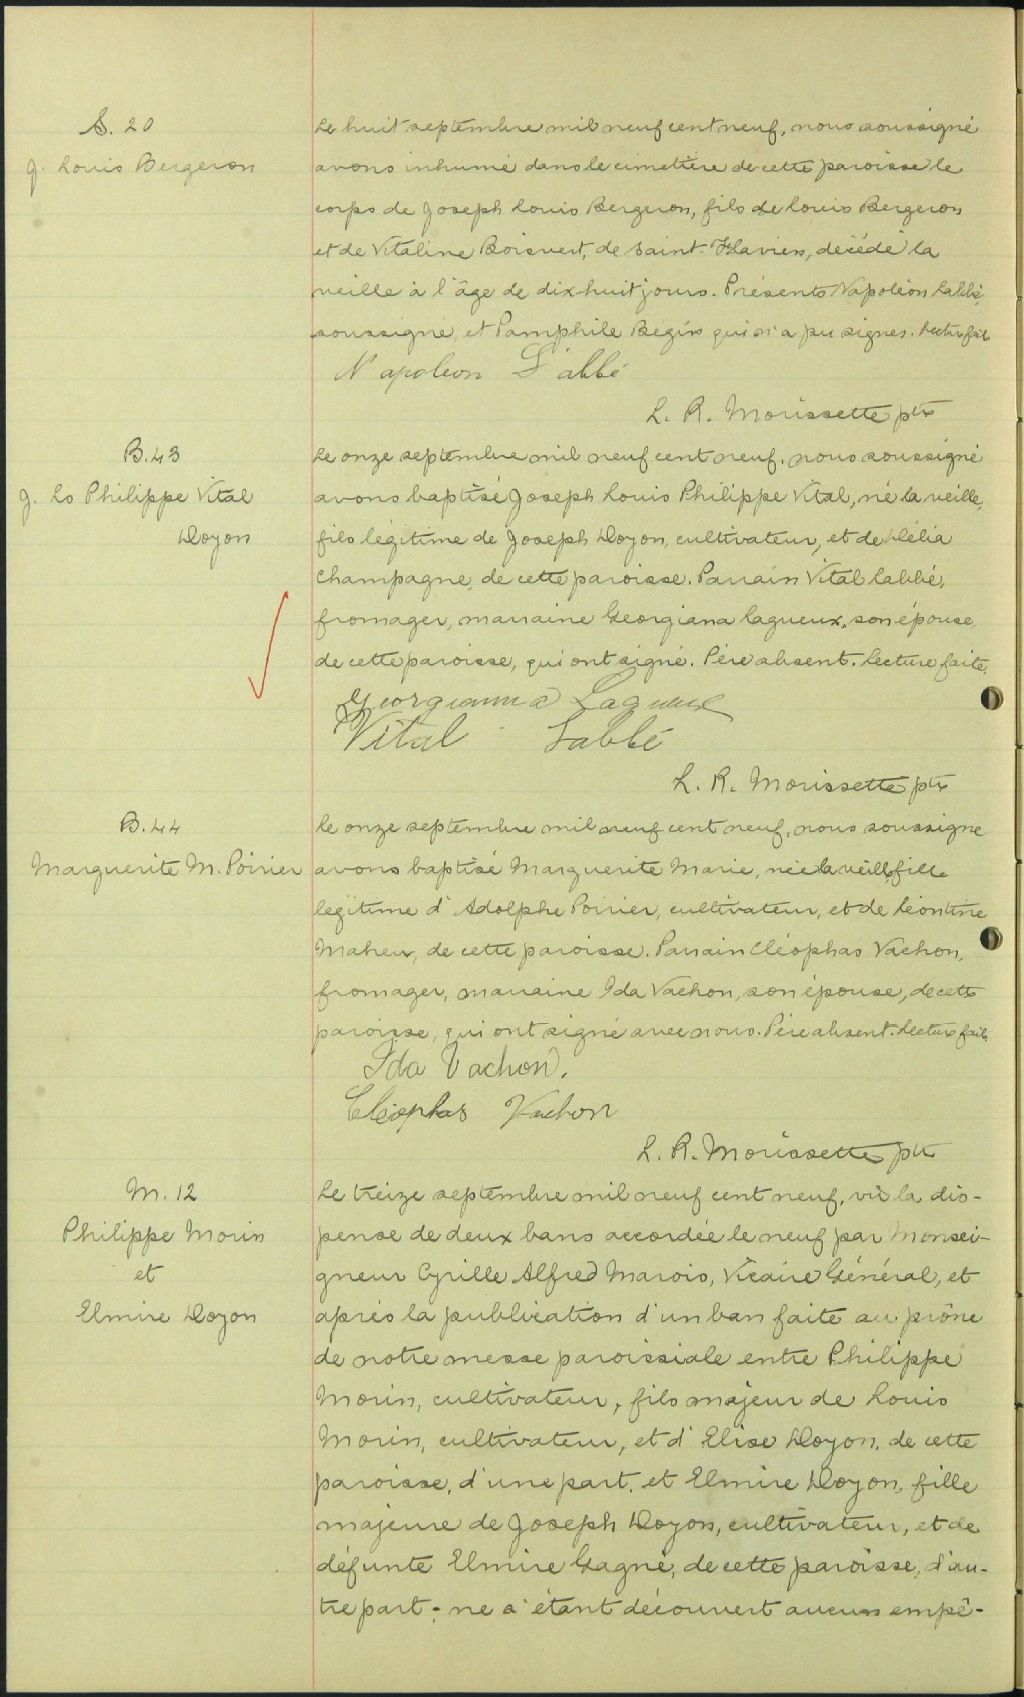 S. 20
J. Louis Bergeron
Le huit septembre mil neuf cent neuf, nous soussigné
avons inhumé dans le cimetière de cette paroisse le
corps de Joseph Louis Bergeron, fils de Louis Bergeron
et de Vitaline Boisvert, de Saint-Flavien, décédé la
veille à l'âge de dix-huit jours. Présents Napoléon Labbé,
soussigné, et Pamphile Begin qui n'a pu signer. Lecture faite
Napoleon L'abbé
L. R. Morissette ptre
B. 43
J. Ls Philippe Vital
Doyon
Le onze septembre mil neuf cent neuf, nous soussigné
avons baptisé Joseph Louis Philippe Vital, né la veille,
fils légitime de Joseph Doyon, cultivateur, et de Délia
Champagne, de cette paroisse. Parrain Vital Labbé,
fromager, marraine Georgiana Lagueux, son épouse,
de cette paroisse, qui ont signé. Père absent. Lecture faite.
Georgianna Lagueux
Vital Labbé
L. R. Morissette ptre
B. 44
Marguerite M. Poirier
Le onze septembre mil neuf cent neuf, nous soussigné
avons baptisé Marguerite Marie, née la veille, fille
légitime d'Adolphe Poirier, cultivateur, et de Léontine
Maheu, de cette paroisse. Parrain Cléophas Vachon,
fromager, marraine Ida Vachon, son épouse, de cette
paroisse, qui ont signé avec nous. Père absent. Lecture faite
Ida Vachon.
Cléophas Vachon
L. R. Morissette ptr
M. 12
Philippe Morin
et
Elmire Doyon
Le treize septembre mil neuf cent neuf, vu la dis-
pense de deux bans accordée le neuf par Monsei-
gneur Cyrille Alfred Marois, Vicaire Général, et
après la publication d'un ban faite au prône
de notre messe paroissiale entre Philippe
Morin, cultivateur, fils majeur de Louis
Morin, cultivateur, et d'Elise Doyon, de cette
paroisse, d'une part, et Elmire Doyon, fille
majeure de Joseph Doyon, cultivateur, et de
défunte Elmire Gagné, de cette paroisse, d'au-
tre part; ne s'étant découvert aucun empê-